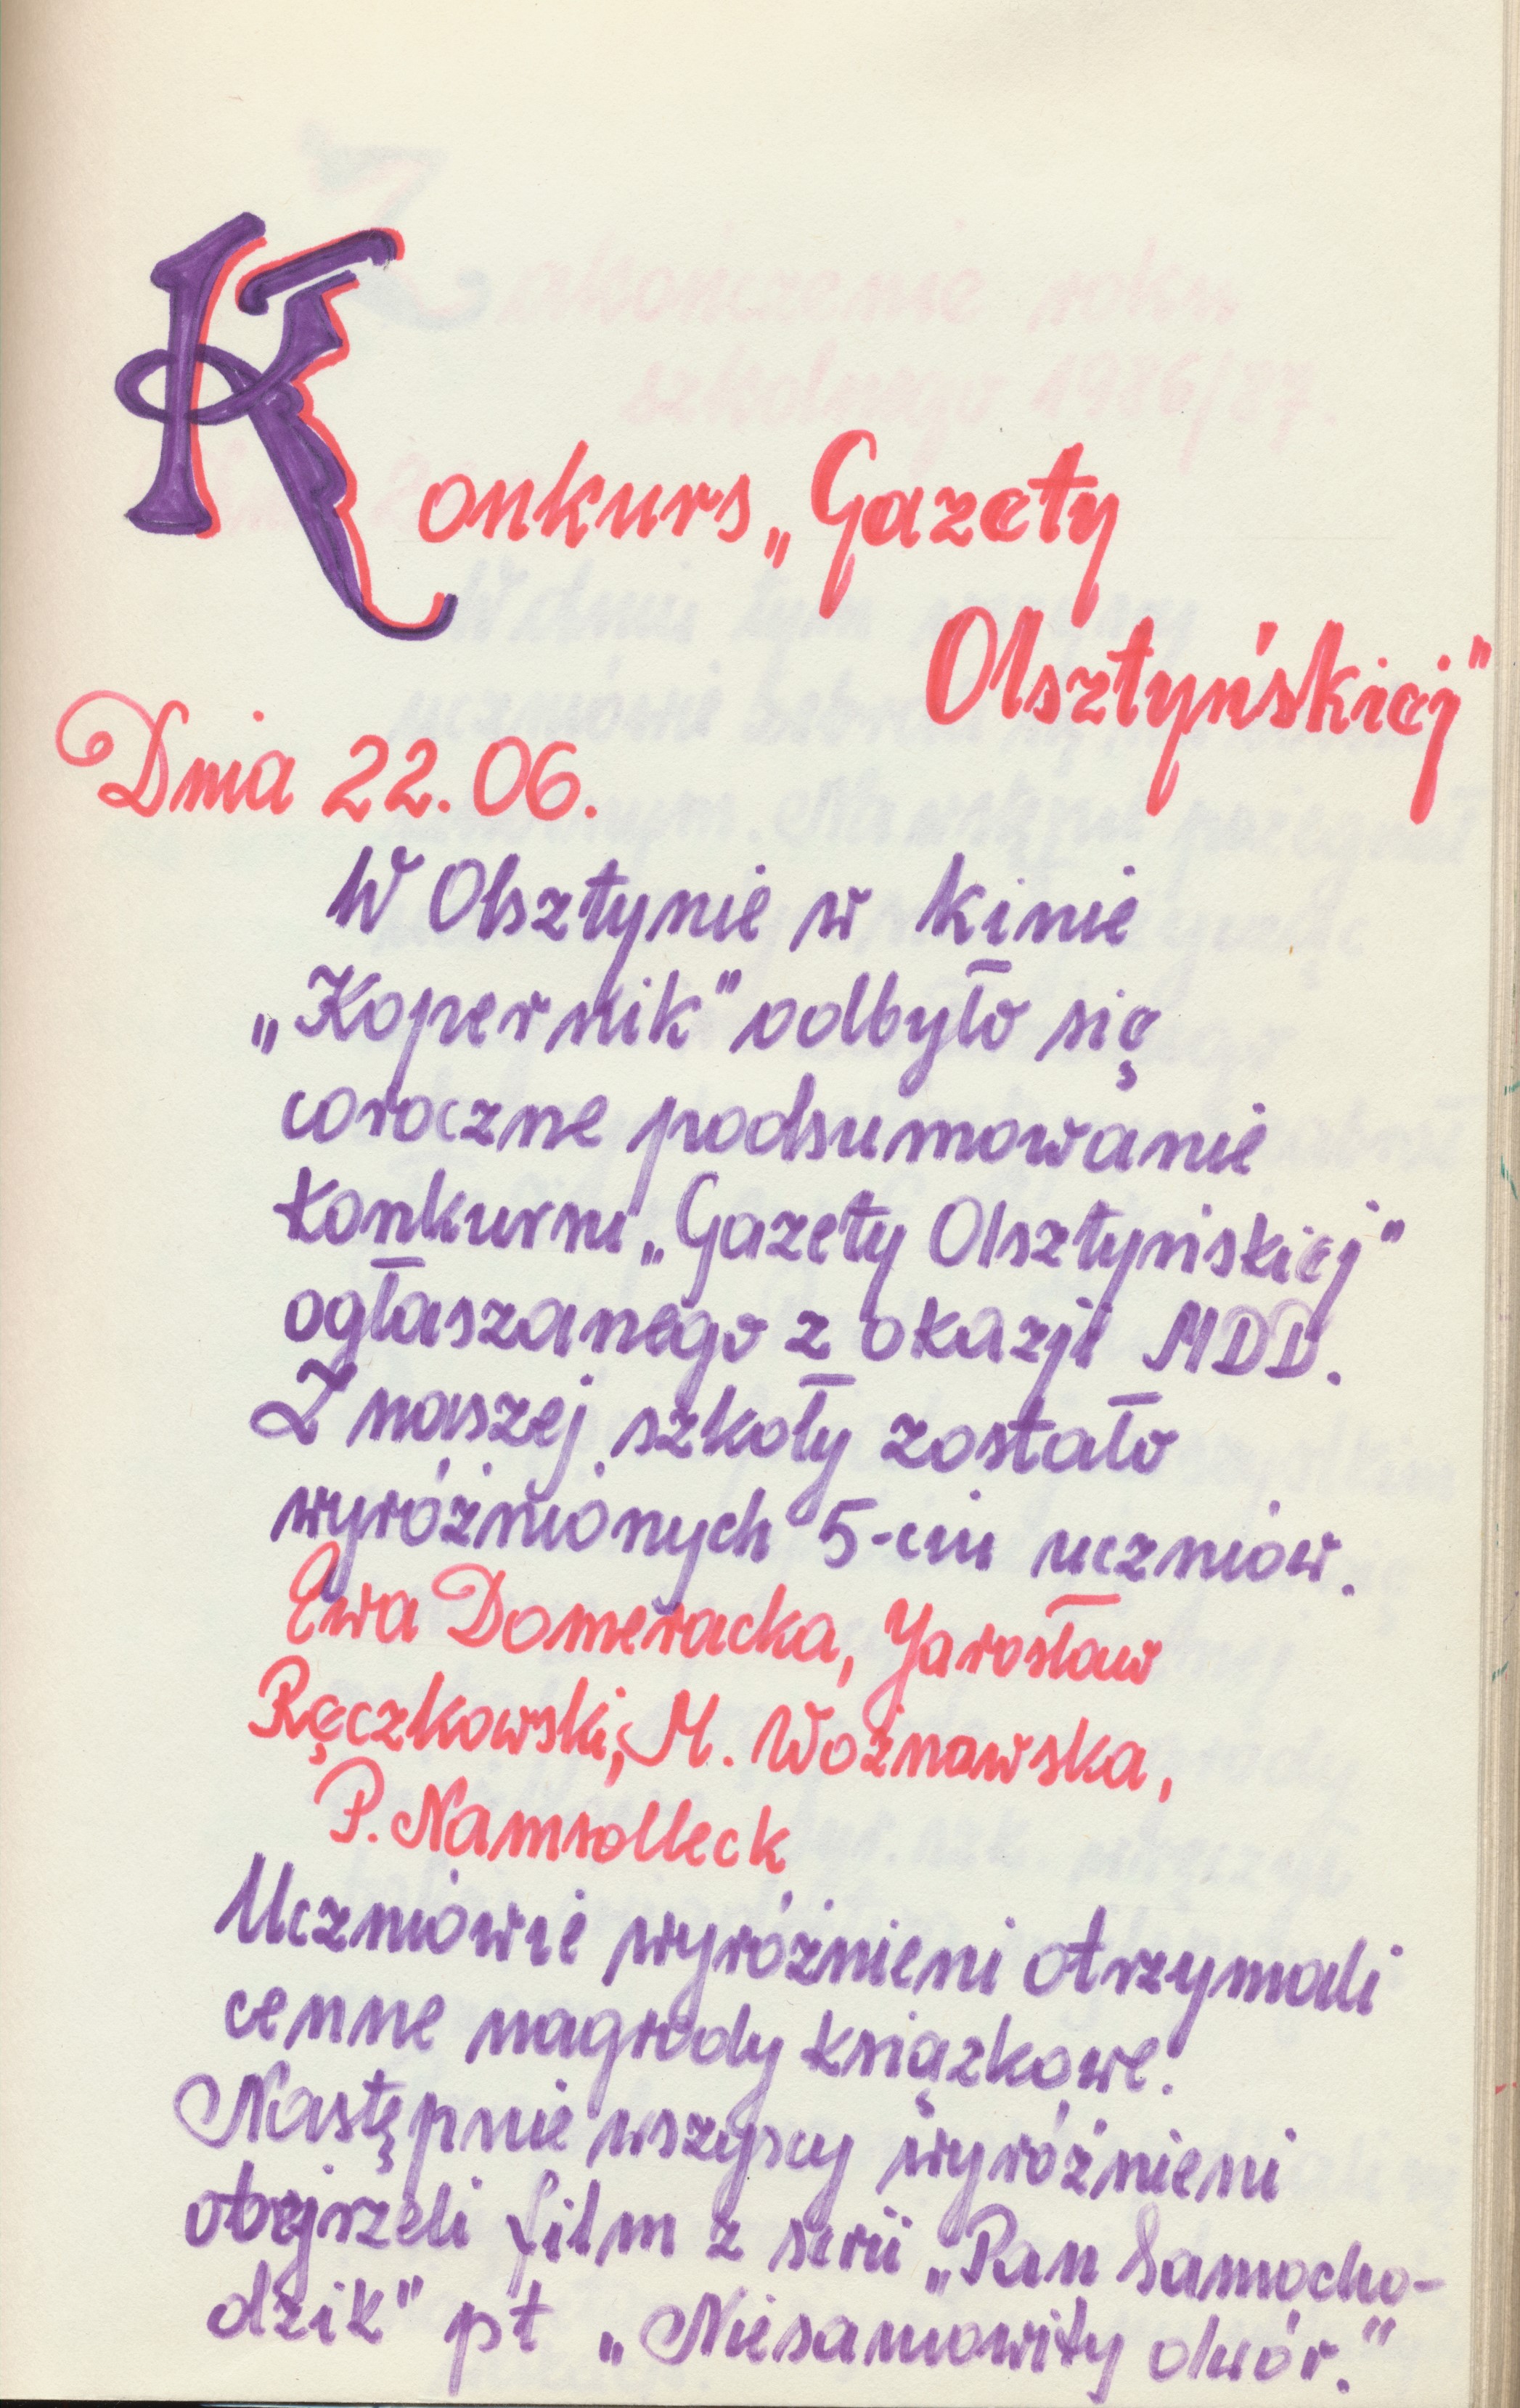 Konkurs „Gazety
Olsztyńskiej"
Dnia 22.06.
W Olsztynie w kinie
„Kopernik" odbyło się
coroczne podsumowanie
konkursu „Gazety Olsztyńskiej"
ogłaszanego z okazji MDD.
Z naszej szkoły zostało
wyróżnionych 5-ciu uczniów.
Ewa Domeracka, Jarosław
Ręczkowski, M. Woźnowska,
P. Namsolleck
Uczniowie wyróżnieni otrzymali
cenne nagrody książkowe.
Następnie wszyscy wyróżnieni
obejrzeli film z serii „Pan Samocho-
dzik" pt „Niesamowity dwór."